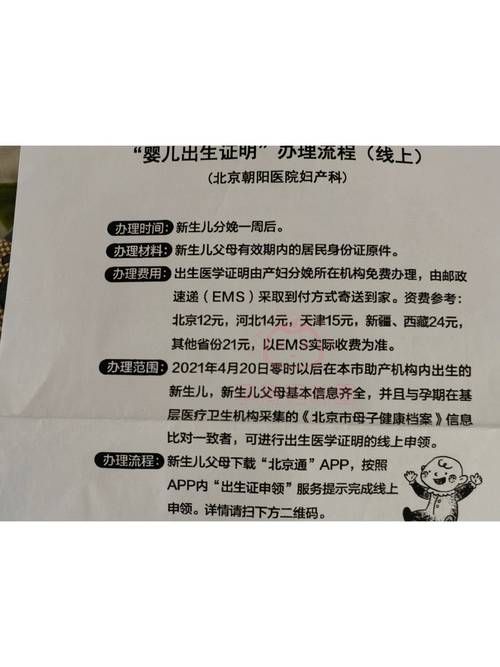 “婴儿出生证明”办理流程（线上）
（北京朝阳医院妇产科）
办理时间：新生儿分娩一周后。
办理材料：新生儿父母有效期内的居民身份证原件。
办理费用：出生医学证明由产妇分娩所在机构免费办理，由邮政
速递（EMS）采取到付方式寄送到家。资费参考：
北京12元，河北14元，天津15元，新疆、西藏24元，
其他省份21元，以EMS实际收费为准。
办理范围：2021年4月20日零时以后在本市助产机构内出生的
新生儿，新生儿父母基本信息齐全，并且与孕期在基
层医疗卫生机构采集的《北京市母子健康档案》信息
比对一致者，可进行出生医学证明的线上申领。
办理流程：新生儿父母下载“北京通”APP，按照
APP内“出生证申领”服务提示完成线上
申领。详情请扫下方二维码。